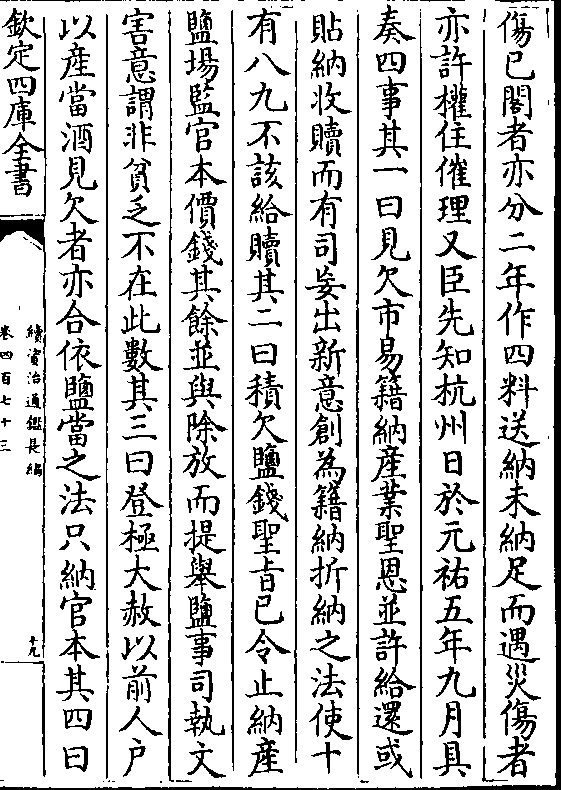 傷已閣者亦分二年作四料送納未納足而遇災傷者
亦許權住催理又臣先知杭州日於元祐五年九月具
奏四事其一曰見欠市易籍納産業聖恩並許給還或
貼納收贖而有司妄出新意創為籍納折納之法使十
有八九不該給贖其二曰積欠鹽錢聖旨已令止納産
鹽場監官本價錢其餘並與除放而提舉鹽事司執文
害意謂非貧乏不在此數其三曰登極大赦以前人户
以産當酒見欠者亦合依鹽當之法只納官本其四曰
欽定四庫全書
續資治通鑑長編
卷四百七十三
十九